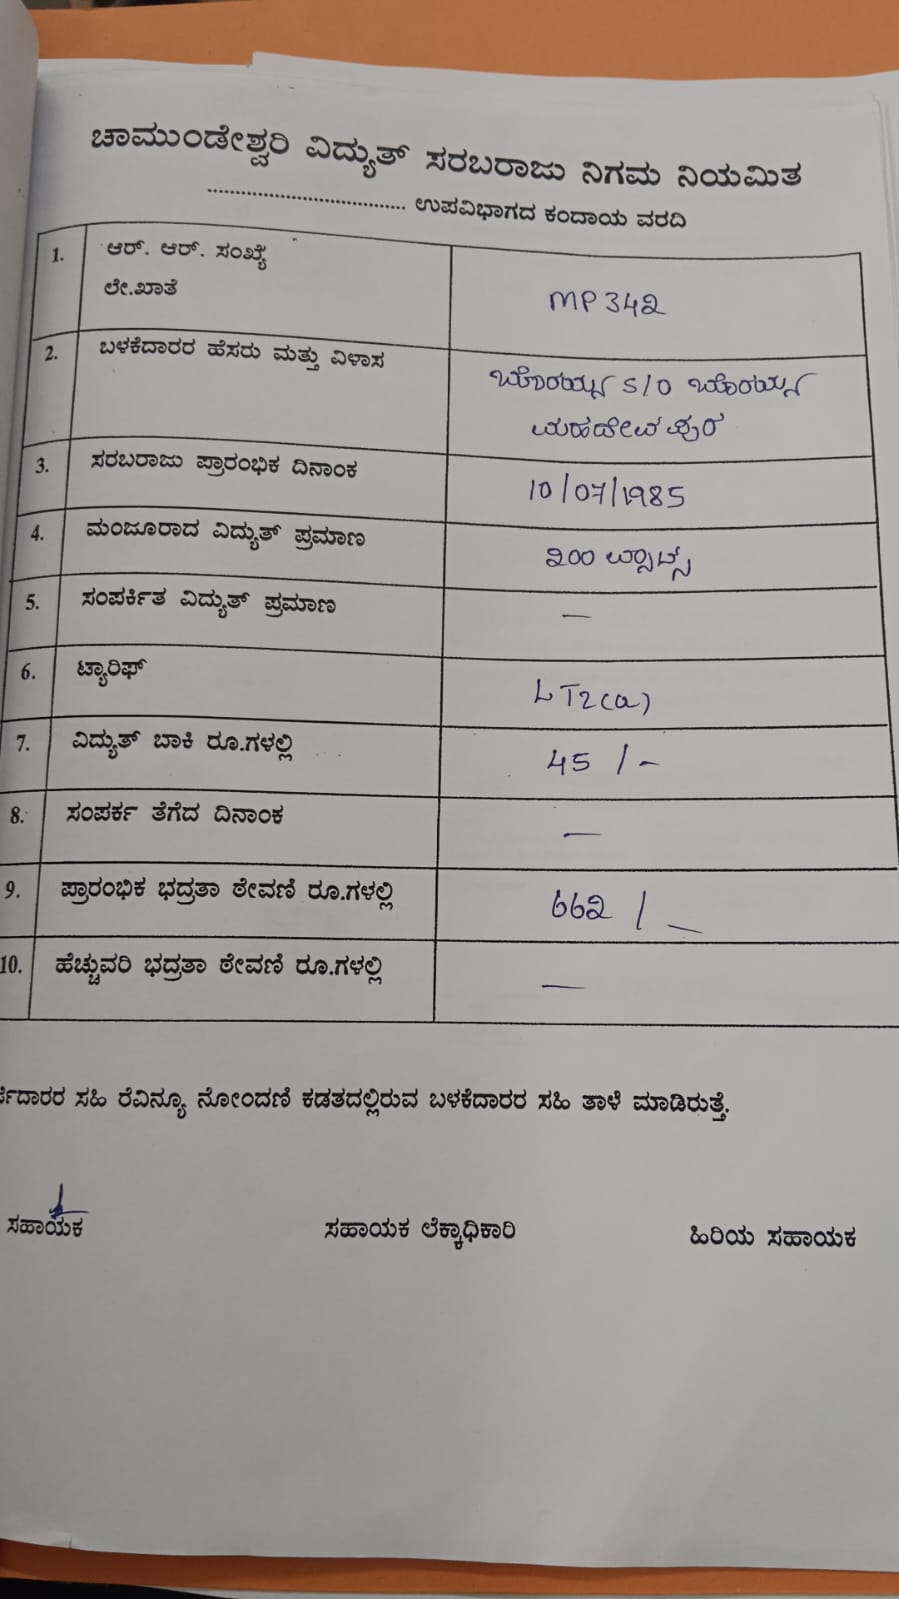 ಚಾಮುಂಡೇಶ್ವರಿ ವಿದ್ಯುತ್ ಸರಬರಾಜು ನಿಗಮ ನಿಯಮಿತ
.................................... ಉಪವಿಭಾಗದ ಕಂದಾಯ ವರದಿ
1. ಆರ್. ಆರ್. ಸಂಖ್ಯೆ
ಲೇ.ಖಾತೆ MP 342
2. ಬಳಕೆದಾರರ ಹೆಸರು ಮತ್ತು ವಿಳಾಸ
S/O
ಮಹದೇವಪುರ
3. ಸರಬರಾಜು ಪ್ರಾರಂಭಿಕ ದಿನಾಂಕ 10/07/1985
4. ಮಂಜೂರಾದ ವಿದ್ಯುತ್ ಪ್ರಮಾಣ 200 ವ್ಯಾಟ್ಸ್
5. ಸಂಪರ್ಕಿತ ವಿದ್ಯುತ್ ಪ್ರಮಾಣ —
6. ಟ್ಯಾರಿಫ್ LT2(a)
7. ವಿದ್ಯುತ್ ಬಾಕಿ ರೂ.ಗಳಲ್ಲಿ 45 /-
8. ಸಂಪರ್ಕ ತೆಗೆದ ದಿನಾಂಕ —
9. ಪ್ರಾರಂಭಿಕ ಭದ್ರತಾ ಠೇವಣಿ ರೂ.ಗಳಲ್ಲಿ 662 /-
10. ಹೆಚ್ಚುವರಿ ಭದ್ರತಾ ಠೇವಣಿ ರೂ.ಗಳಲ್ಲಿ —
ಸಹಿ ರೆವಿನ್ಯೂ ನೋಂದಣಿ ಕಡತದಲ್ಲಿರುವ ಬಳಕೆದಾರರ ಸಹಿ ತಾಳೆ ಮಾಡಿರುತ್ತೆ.
ಸಹಾಯಕ ಸಹಾಯಕ ಲೆಕ್ಕಾಧಿಕಾರಿ ಹಿರಿಯ ಸಹಾಯಕ